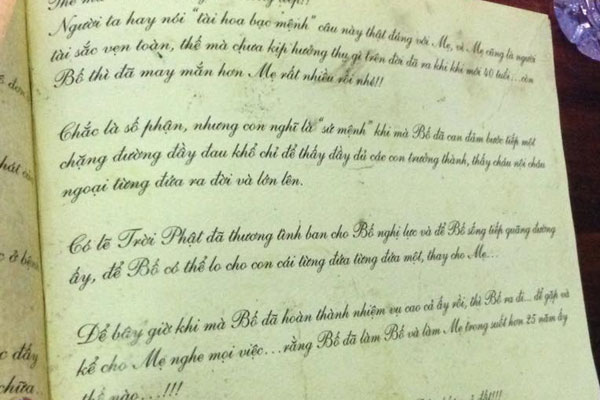 Người ta hay nói "tài hoa bạc mệnh" câu này thật đúng với Mẹ, vì Mẹ cũng là người
tài sắc vẹn toàn, thế mà chưa kịp hưởng thụ gì trên đời đã ra khi khi mới 40 tuổi...còn
Bố thì đã may mắn hơn Mẹ rất nhiều rồi nhé!!
Chắc là số phận, nhưng con nghĩ là "sứ mệnh" khi mà Bố đã can đảm bước tiếp một
chặng đường đầy đau khổ chỉ để thấy đầy đủ các con trưởng thành, thấy cháu nội cháu
ngoại từng đứa ra đời và lớn lên.
Có lẽ Trời Phật đã thương tình ban cho Bố nghị lực và để Bố sống tiếp quãng đường
ấy, để Bố có thể lo cho con cái từng đứa từng đứa một, thay cho Mẹ...
Để bây giờ khi mà Bố đã hoàn thành nhiệm vụ cao cả ấy rồi, thì Bố ra đi... để gặp và
kể cho Mẹ nghe mọi việc...rằng Bố đã làm Bố và làm Mẹ trong suốt hơn 25 năm ấy
thế nào...!!!